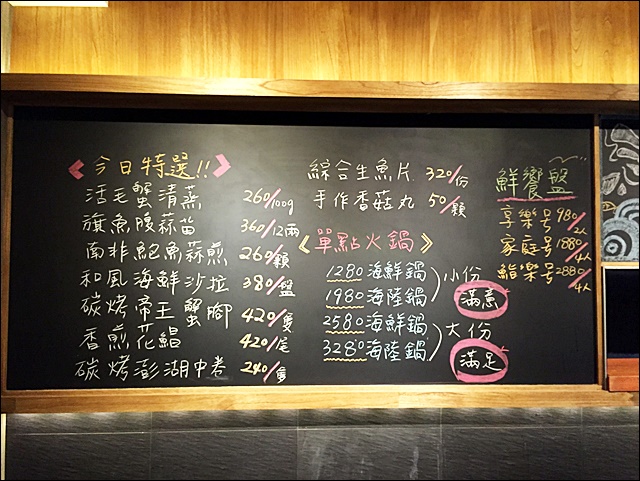 今日特選!!
活毛蟹清蒸 260/100g
旗魚腹蒜苗 360/12兩
南非鮑魚蒜煎 260/顆
和風海鮮沙拉 380/盤
碳烤帝王蟹腳 420/隻
香煎花鯧 420/尾
碳烤澎湖中卷 240/隻
綜合生魚片 320/份
手作香菇丸 50/顆
《單點火鍋》
1280海鮮鍋
1980海陸鍋
小份
滿意
2580海鮮鍋
3280海陸鍋
大份
滿足
鮮饗盤
享樂号 980/2人
家庭号 1880/4人
鮨樂号 2880/4人